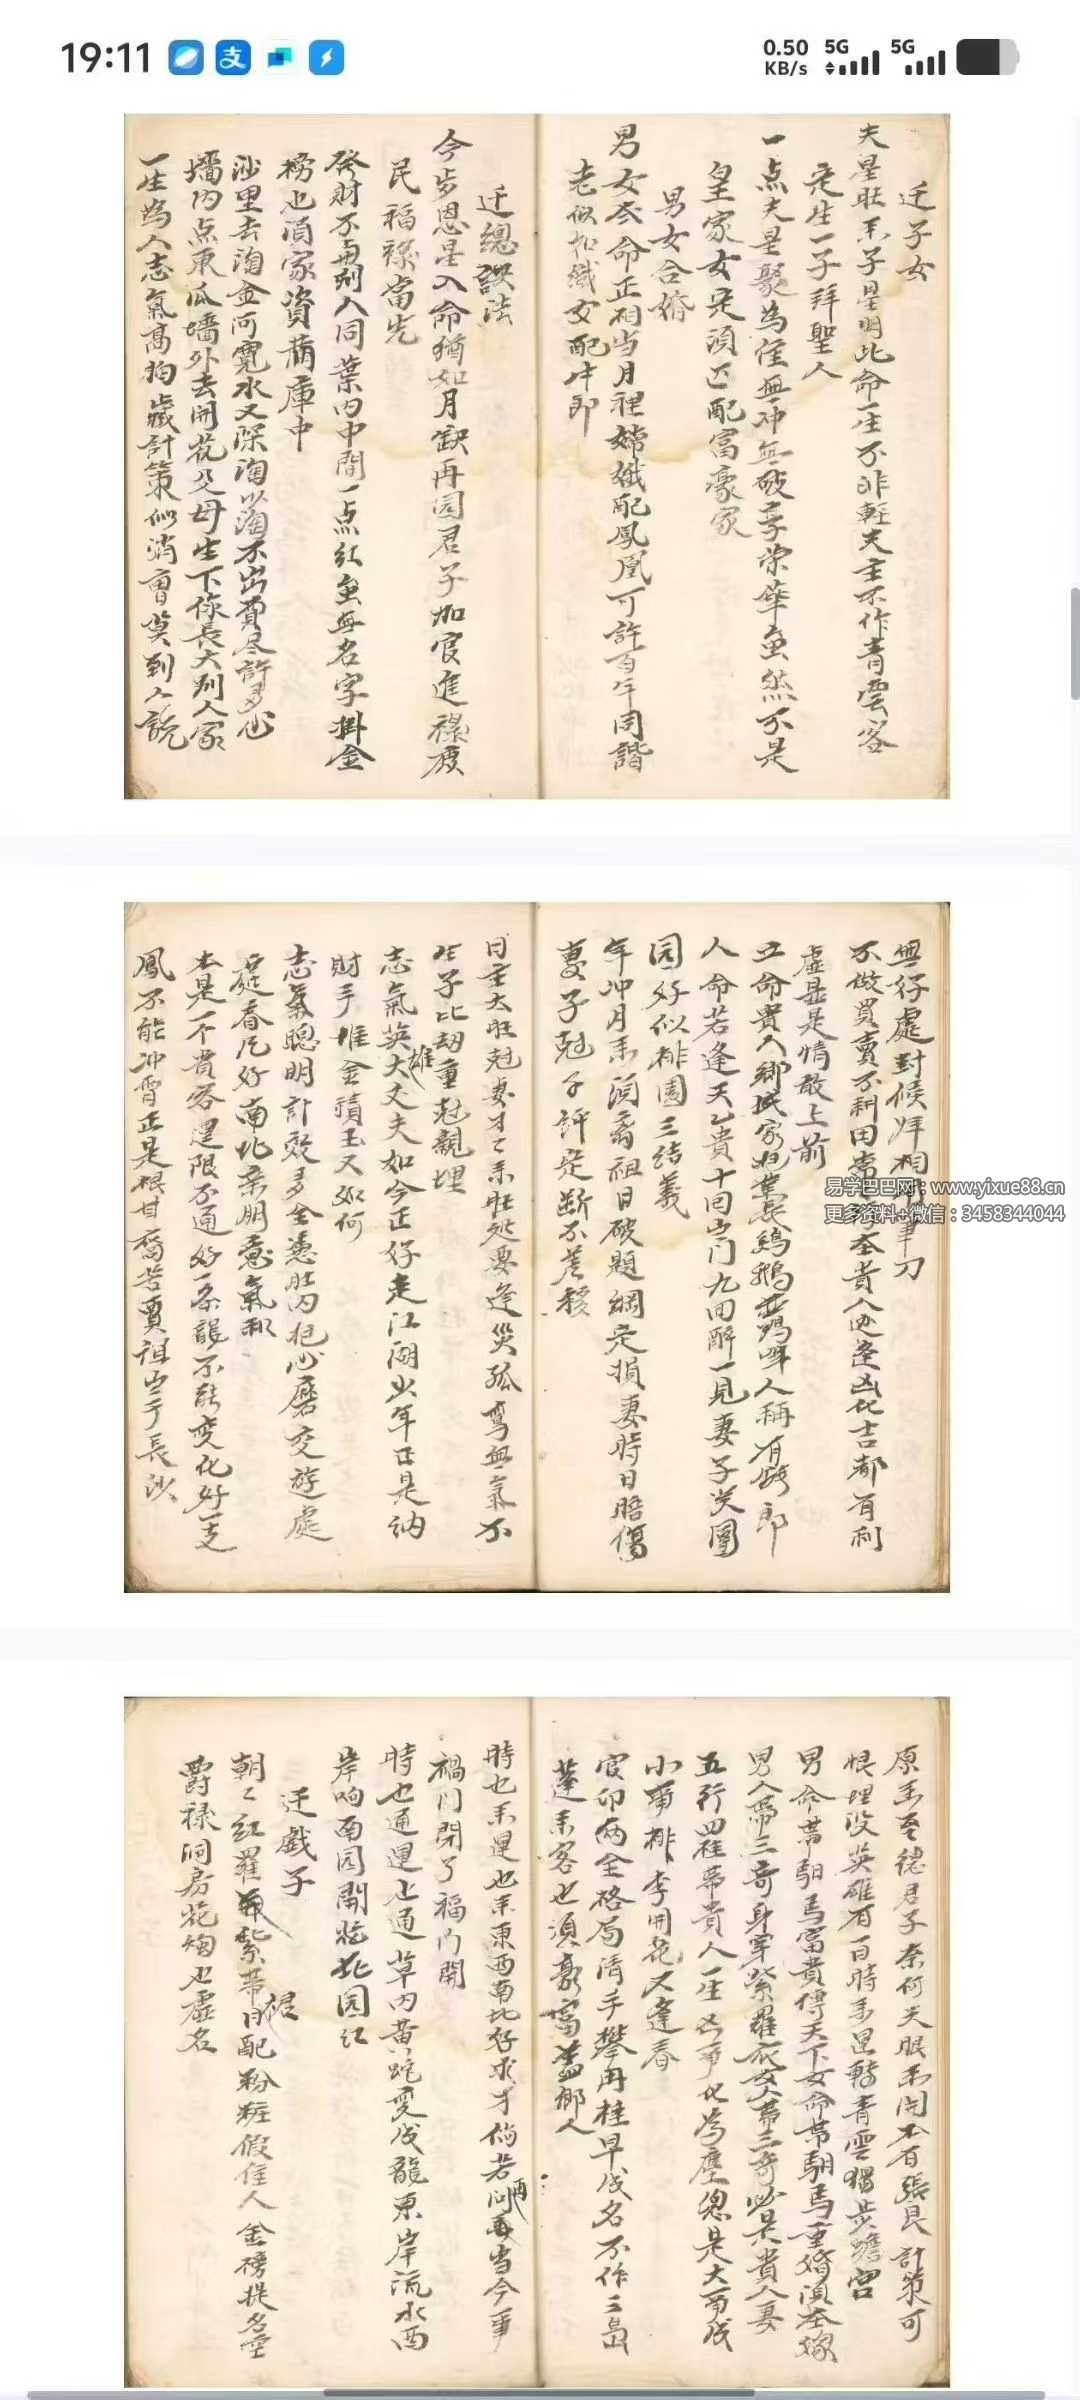 19:11
0.50 KB/s 5G 5G
迁子女
夫星旺禾子星明此命一生不非軽夫主不作青雲客
定生一子拜聖人
一点夫星聚為佳無冲無破享荣華虽然不是
皇家女定須匹配富豪家
男女合婚
男女衣命正相当月裡嫦娥配鳳凰可許百年同諧
老似如織女配牛郎
迁總訣法
今步恩星入命猶如月缺再园君子加官進禄废
民福禄當先
發財不再别入同葉内中間一点红虽無名字掛金
榜也湏家資満庫中
沙里去淘金河寬水又深淘以淘不出費尽許多心
墻内点東瓜墻外去開花父母生下你長大别人家
一生為人志氣高胸藏計策似消曹莫到人説
無好處封候拜相用筆刀
不做買賣不耕田常行在貴人边逢凶化吉都有利
虚是是情敢上前
立命貴人鄉成家把業長鷄鵝並鴨叫人稱有時郎
人命若逢天乙貴十回出门九回醉一見妻子笑團
园好似桃園三结義
年冲月禾須离祖日破題綱定損妻時日暗傷
妻子尅子許定断不差移
日主太旺尅妻才才禾旺处要逢災孤鸾無氣不
生子比劫重尅親埋
志氣英雄大丈夫如今正好走江湖少年正是讷
財手堆金積玉又如何
志氣聰明計效多全憑肚内把心磨交遊處
庭春凡好南北亲朋意氣和
本是一不貴客運限不通好一条龍不能变化好一支
鳳不能冲霄正是根甘喬苦賣祖空手長沙
易学巴巴网：www.yixue88.cn
更多资料+微信：3458344044
原禾至德君子奈何天眼禾開不有張良計策可
恨埋没英雄有一日時禾運轉青雲獨步蟾宫
男命帶馹馬富貴傳天下女命帶馹馬重婚須在嫁
男人帶三奇身穿紫羅衣女人帶三奇必是貴人妻
五行四柱帶貴人一生凶事化為塵總是大事成
小事桃李開花又逢春
官印両全格局清手攀丹桂早成名不作三島
蓬禾客也須豪富盖鄉人
時也禾運也禾東西南北好求才倘若问再當今事
禍门閉了福门開
時也通運也通草内黄蛇变成龍東岸流水西
岸响南园開花北园红
迁戯子
朝朝红羅紫帶根日配粉粧假佳人金榜提名空
爵禄洞房花烛也虚名